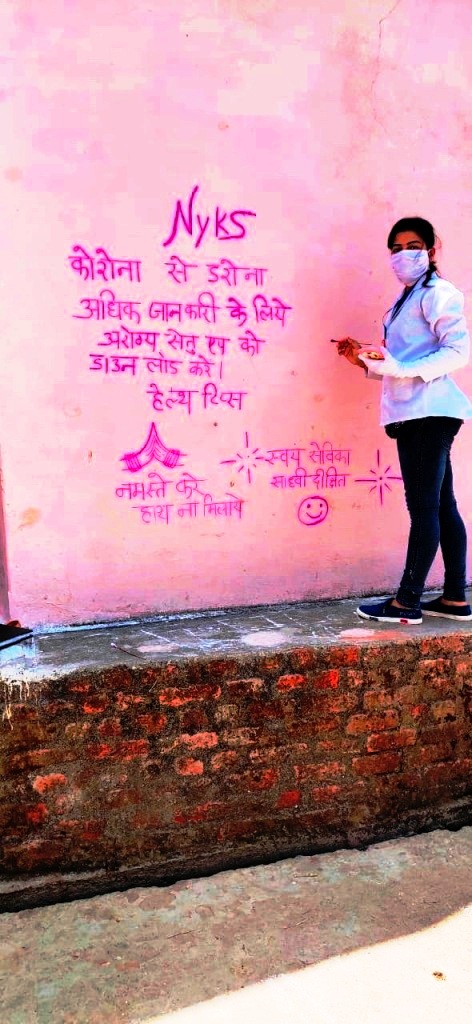 NYKS
कोरोना से डरोना
अधिक जानकारी के लिये
अरोग्य सेतु एप को
डाउन लोड करे।
हेल्थ टिप्स
नमस्ते करे
हाथ ना मिलाये
स्वयं सेविका
साध्वी दीक्षित